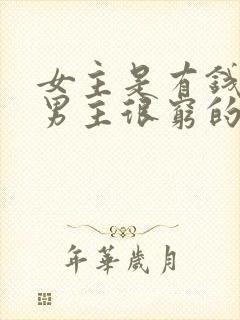 女主是有錢
男主很窮的
年華歲月